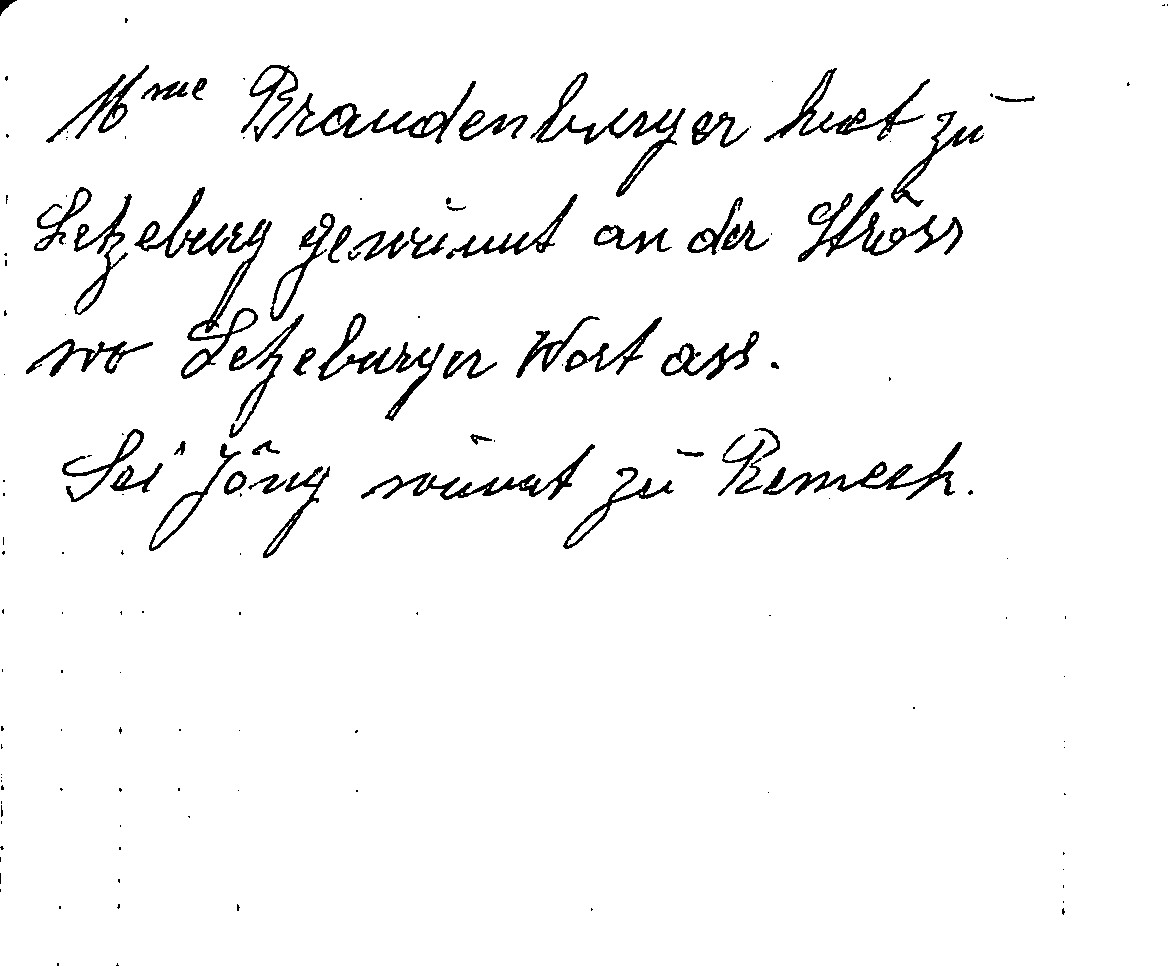 Mme Brandenburger huet zu
Letzeburg gewunnt an der Strōss
wo Letzeburger Wort ass.
Sei Jông wunnt zu Remech.